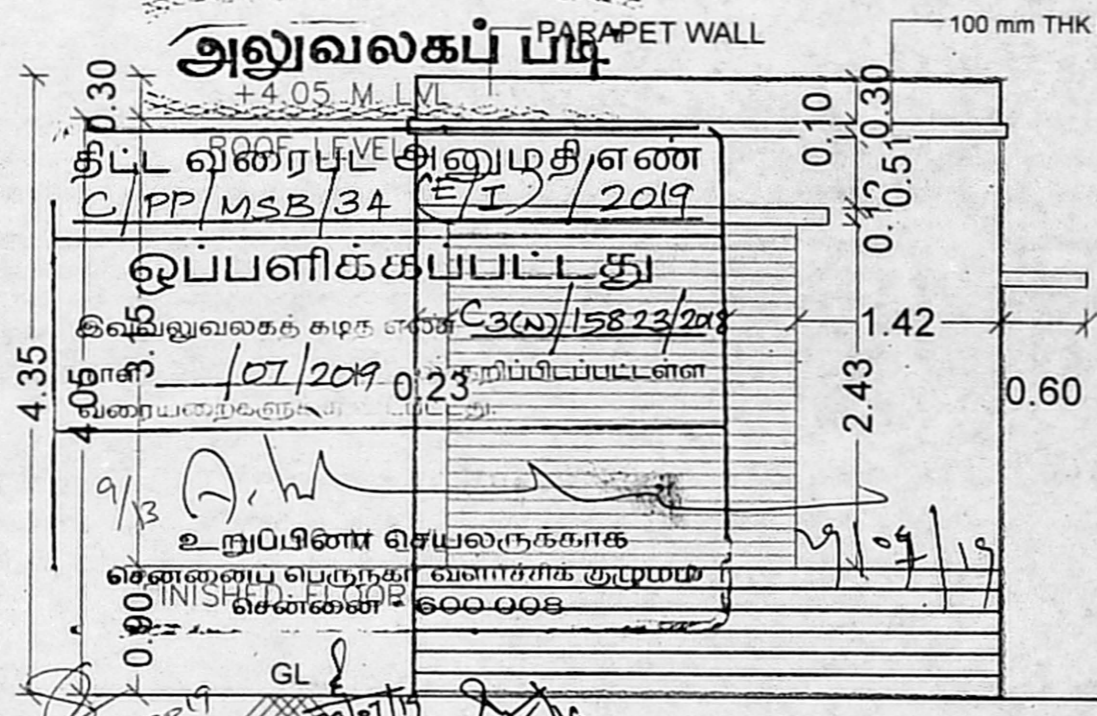 அலுவலகப் படி
PARAPET WALL
100 mm THK
+4.05 M LVL
ROOF LEVEL
திட்ட வரைபட அனுமதி எண்
C/PP/MSB/34 (E/I) / 2019
ஒப்பளிக்கப்பட்டது
இவ்வலுவலகத் கடித எண் C3(N)/15823/2018
நாள் /07/2019 குறிப்பிடப்பட்டள்ள
9/13
உறுப்பினர் செயலருக்காக
சென்னைப் பெருநகர் வளர்ச்சிக் குழுமம்
INISHED FLOOR
சென்னை - 600 008
GL
0.30
4.35
4.05
0.90
0.23
0.10
0.30
0.51
0.12
2.43
1.42
0.60